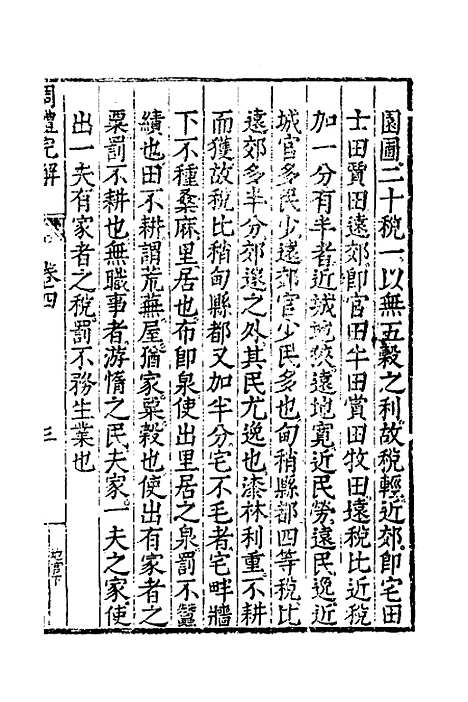 園圃二十稅一以無五穀之利故稅輕近郊即宅田
士田賈田遠郊即官田牛田賞田牧田遠稅比近稅
加一分有半者近城地狹遠地寬近民勞遠民逸近
城官多民少遠郊官少民多也甸稍縣都四等稅比
遠郊多半分郊遂之外其民尤逸也漆林利重不耕
而獲故稅比稍甸縣都又加半分宅不毛者宅畔牆
下不種桑麻里居也布即泉使出里居之泉罰不蠶
績也田不耕謂荒蕪屋猶家粟穀也使出有家者之
粟罰不耕也無職事者游惰之民夫家一夫之家使
出一夫有家者之稅罰不務生業也
周禮完解
卷四
三
地官下